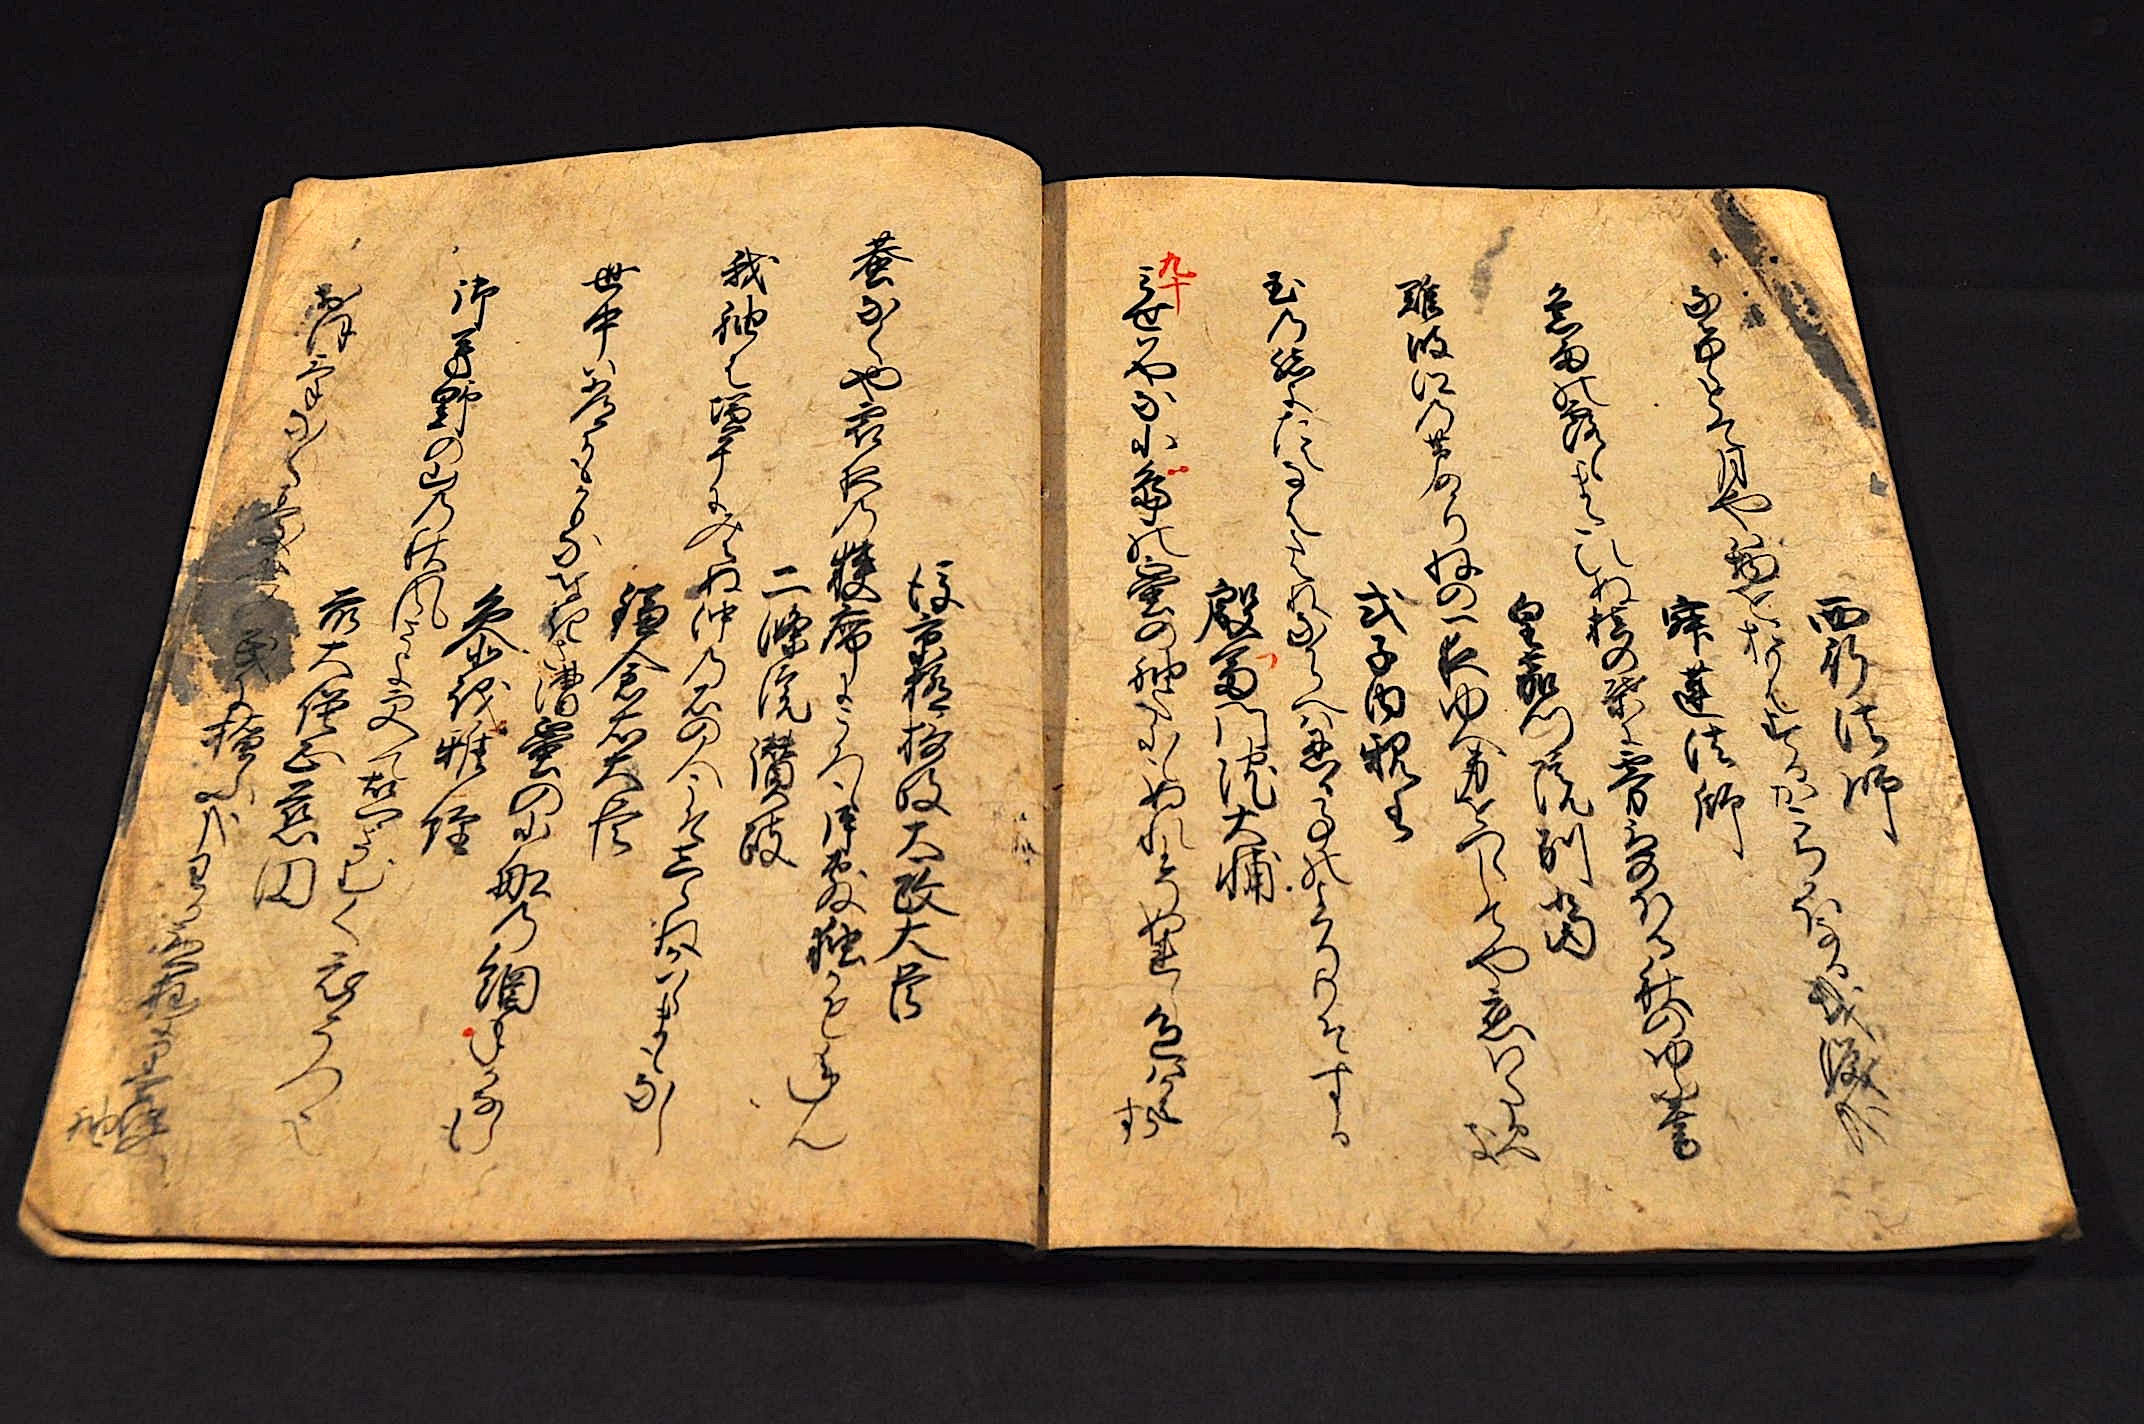 西行法師
なけゝとて月やは物をおもはするかこちかほなる我涙かな
寂蓮法師
急雨の露もまたひぬ槙の葉に雰立のほる秋のゆふ暮
皇嘉門院別当
難波江の芦のかりねの一夜ゆへ身をつくしてや恋わたるへき
式子内親王
玉の緒よたえなはたえねなからへは忍ふる事のよはりもそする
殷富門院大輔
九十
みせはやな小嶋の蜑の袖たにもぬれにそぬれし色はかはらす
後京極摂政太政大臣
蛬なくや霜夜の狭席にころもかたしき独かもねん
二條院讃岐
我袖は塩干にみえぬ沖の石の人こそしらねかはくまもなし
鎌倉右大臣
世中は常にもかもな渚漕蜑の小船の綱手かなしも
参議雅経
御芳野の山の秋風さよ更て故さとさむく衣うつ也
前大僧正慈円
おほけなくうき世の民に掩ふかなわかたつ杣に墨染の袖